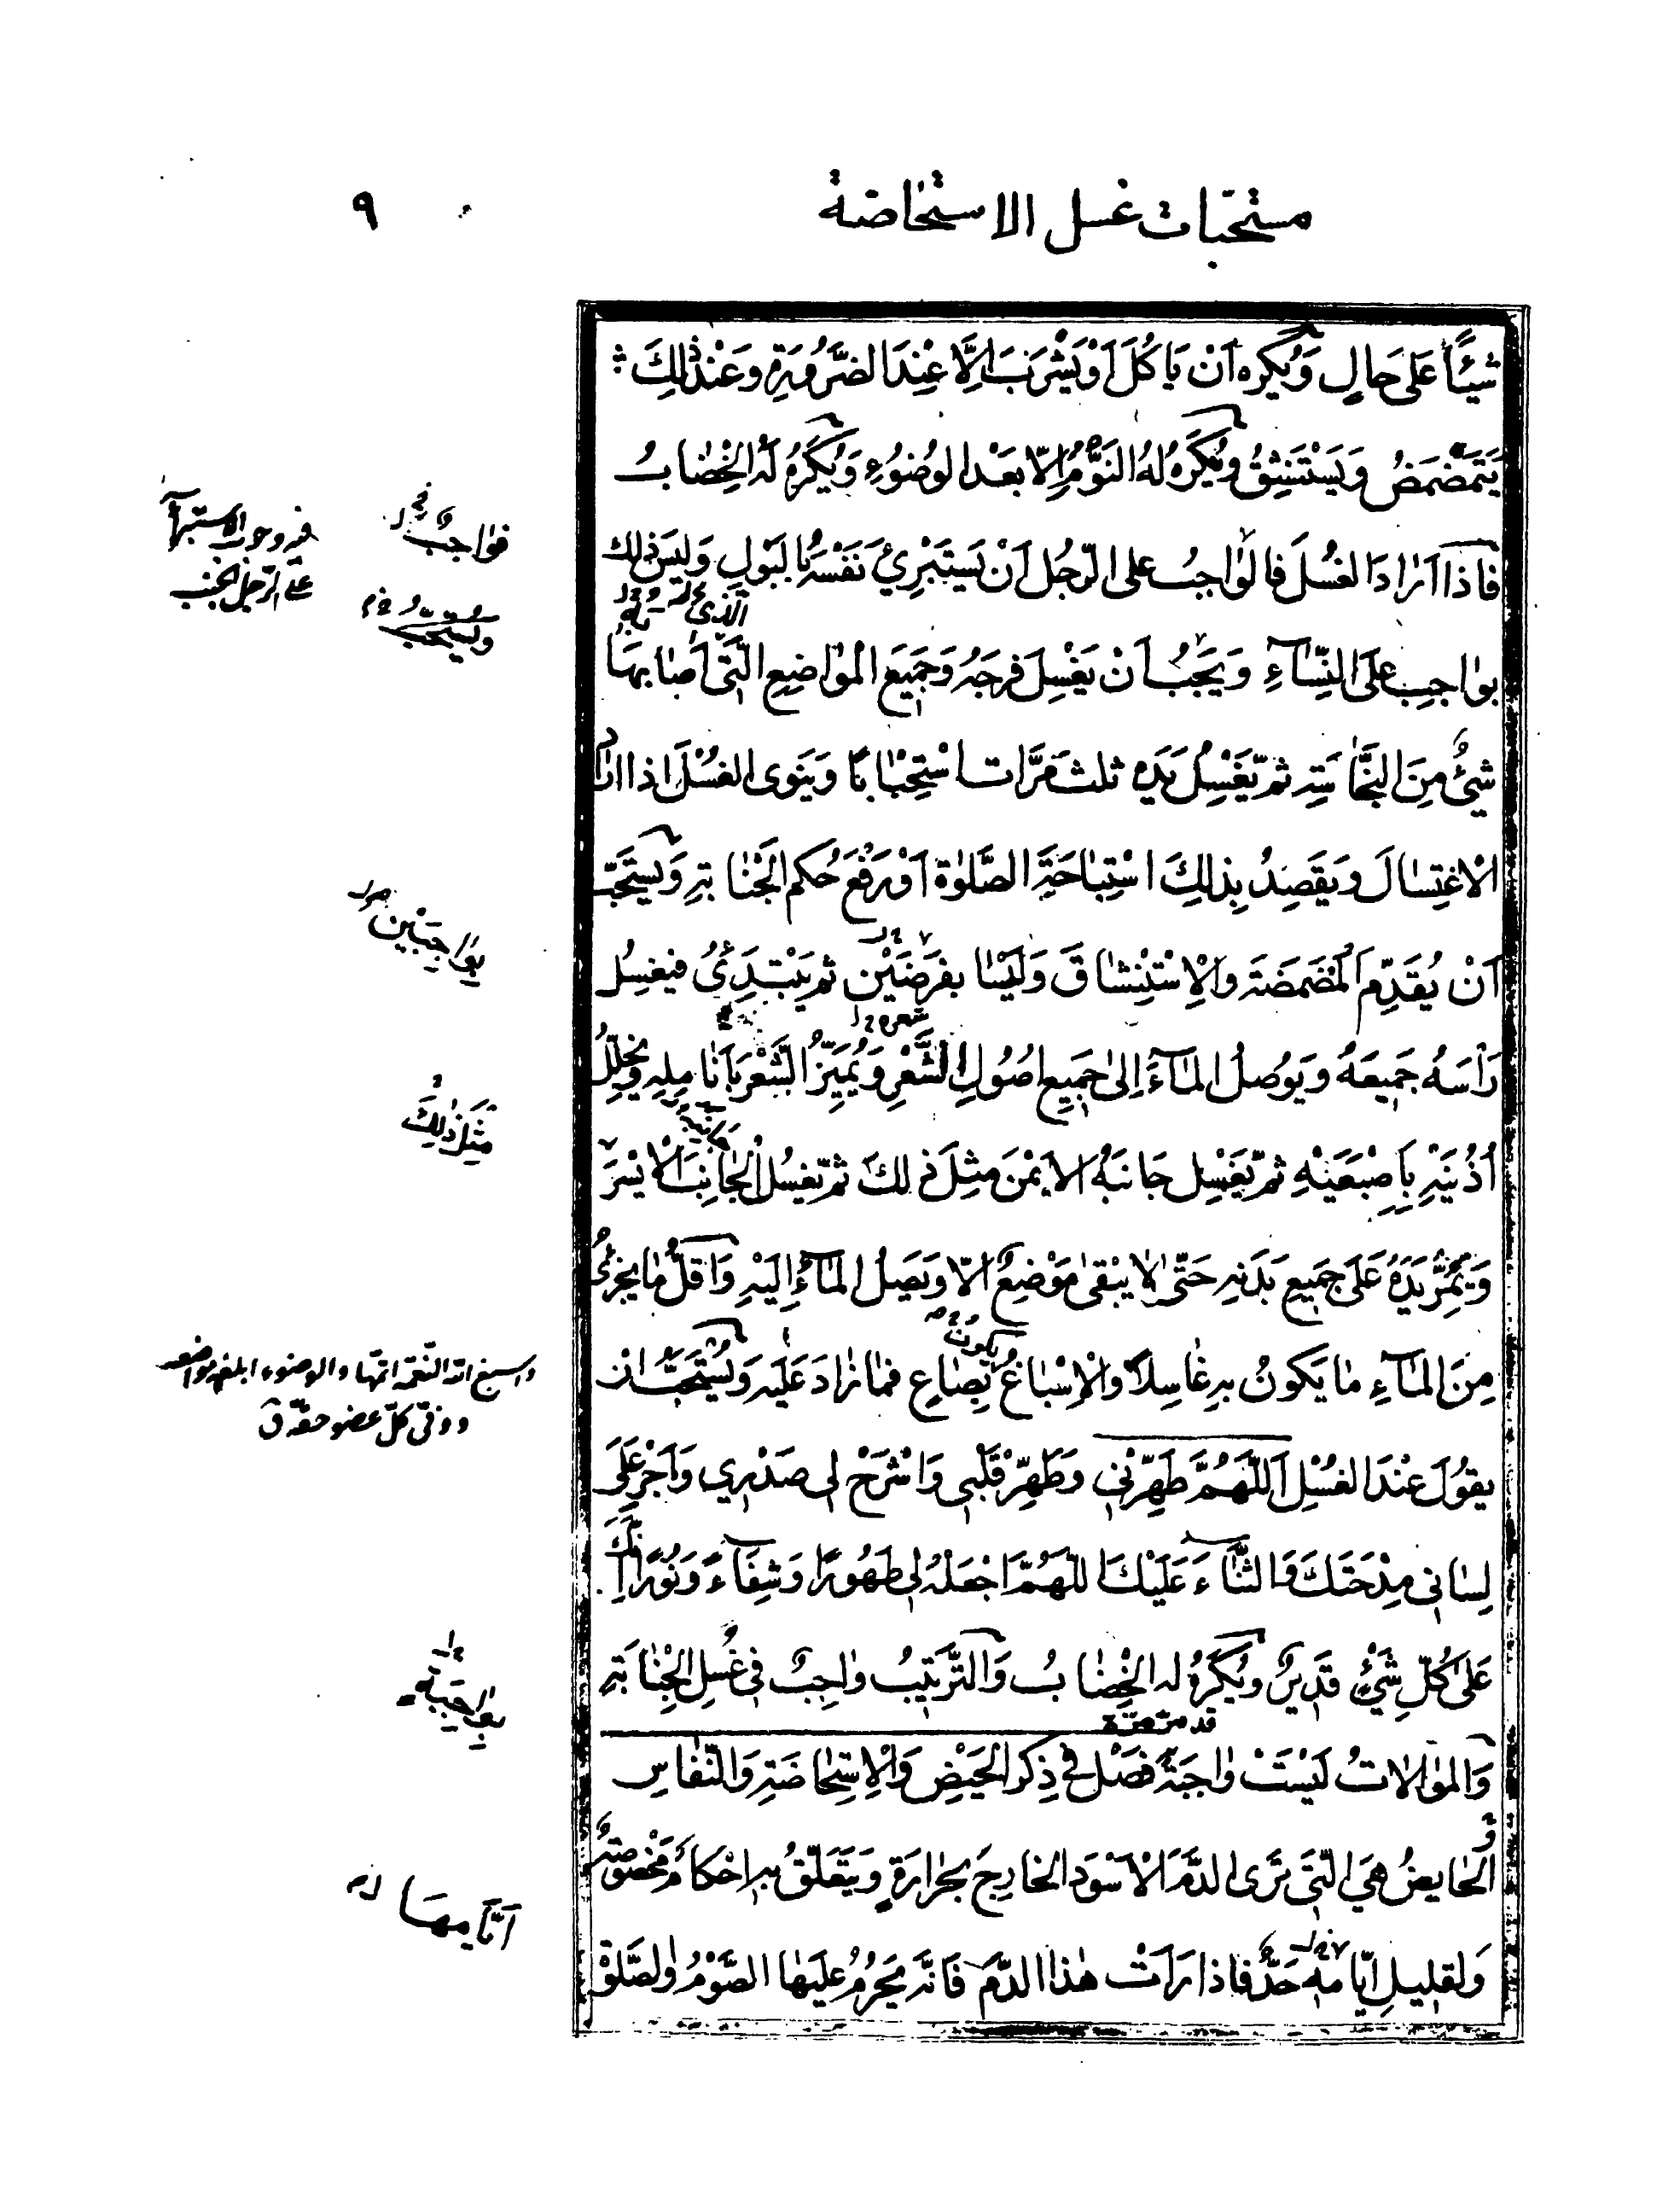 مستحبات غسل الاستحاضة
٩
شَيْئًا عَلى حَالٍ وَيُكره اَنْ يَاكُلَ اَوْ يَشْرَبَ اِلَّا عِنْدَ الضَّرُورَةِ وَعِنْدَ ذٰلِكَ
يَتَمَضْمَضُ وَيَسْتَنْشِقُ ويُكْرَهُ لهُ النَوْمُ اِلّا بعَدْ الوُضُوُءِ وَيُكْرَهُ لَهُ الْخِضٰابُ
فاذا اَرٰادَ الغُسْلَ فَالْوٰاجِبُ على الرّجُل اَنْ يَسْتَبْرِئَ نَفْسَهُ بِالبَوْلِ وَلَيسَ ذلك
بوٰاجِبٍ عَلَى النِّسٰآءِ وَيَجَبُ اَنْ يَغْسِلَ فَرجَهُ وَجَمِيَعَ الْمَوٰاضِعِ الَّتى اَصٰابهَا
شَيْءٌ مِنَ النَّجٰاسَةِ ثمّ يَغْسِلُ يَدَه ثلث مَرَّات اسْتِحْبٰابًا وَيَنْوى الغُسْلَ اذا اراد
الْاغْتِسٰالَ وَيَقْصِدُ بِذلِكَ اسْتِبٰاحَةَ الصَّلوٰة اَوْ رَفْعَ حُكم الْجَنٰابَةِ وَيَستَحَبّ
اَنْ يُقَدِّمَ الْمَضْمَضَةَ وَالْاِسْتِنْشٰاقَ وَلَيْسٰا بفَرْضَيْنِ ثم يَبْتَدِئُ فيغسِلُ
رَاْسَهُ جَمِيعَهُ وَيوُصلُ المٰآءَ اِلىٰ جَمِيِع اصُولِ الشَّعْرِ وَيُمَيِّزُ الشَّعْرَ بِاَنٰامِلِهِ وَيُخلِّلُ
اُذُنَيْهِ بِاِصْبَعَيْهِ ثمّ يَغْسِل جَانبَهُ الاَيْمَنَ مِثِلَ ذلِكَ ثمّ يَغسِلُ الْجٰانِبَ الْايْسَرَ
وَيُمِرُّ يَدَهُ عَلَى جَمِيعِ بَدَنِهِ حَتّىٰ لا يَبْقىٰ مَوْضِعٌ الّا وَيَصِلُ المٰآءُ اِلَيْهِ وَاَقَلُّ مٰا يُجْزى
مِنَ المٰآءِ مٰا يَكُونُ بِهِ غٰاسِلاً وَالْاِسْبٰاغُ بِصٰاعٍ فمٰا زٰادَ عَلَيه وَيُسْتَحَبّ اَنْ
يقوُلَ عِنْدَ الغُسْلِ اَللّهُمَّ طَهِّرْني وَطَهِّرْ قَلْبى وَاشْرَحْ لى صَدْرِي وَاَجْرِ عَلىٰ
لِسٰانى مِدْحَتَكَ وَالثَّنٰاءَ عَلَيْكَ اللّهُمَّ اجْعَلْهُ لى طَهُورًا وَشِفٰاءً وَنُورًا اِنَّكَ
عَلىٰ كُلِّ شَىْءٍ قَدِيرٌ ويُكْرَهُ لَه الْخِضٰابُ وَالتَّرتيِبُ وٰاجِبٌ في غُسلِ الْجَنٰابَةِ
وَالموٰالاتُ لَيْسَتْ وٰاجِبَةً فصَْلٌ فى ذِكر الحَيْضِ وَالْاِسْتِحٰاضَةِ وَالنّفٰاسِ
اَلْحٰايضُ هِيَ الّتى تَرَى الدَّمَ الْاَسْوَدَ الخٰارِجَ بِحَرٰارَةٍ وَيَتَعَلّقُ بِه اَحْكٰامٌ مَخْصُوصَةٌ
وَلقليلِ ايّامه حَدٌّ فاذا رَاَتْ هٰذا الدّمَ فَانّهُ يَحْرُمُ عَلَيهٰا الصَّوْمُ وَالصَّلوٰة
فوٰاجبٌ
فى وجوب الاستبرآ
على الرّجل الجنب
ويُستحبّ
بوٰاجبَيْن
مثلَ ذلِكَ
واسبغ الله النّعمة اتمّها والوضوء ابلغه مواضعه
ووفّى كلّ عضو حقّه ق
بوٰاجبَةٍ
اَيّامِهَا